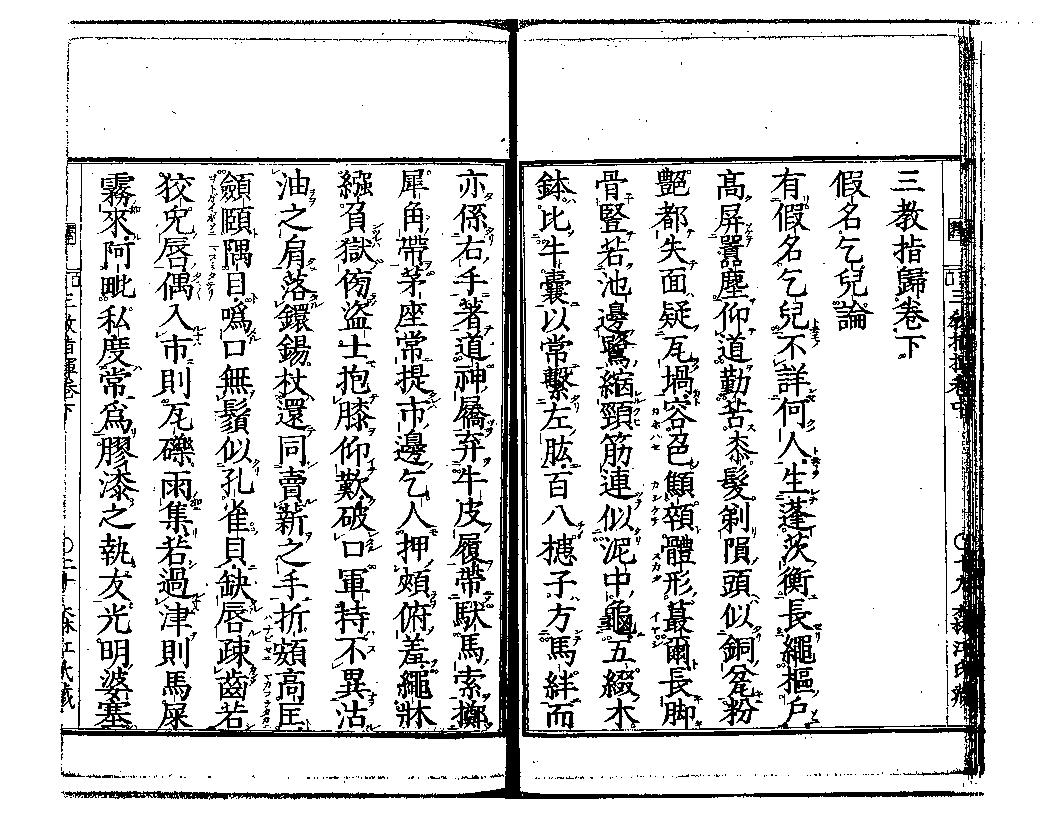 三教指歸卷下
假名乞兒論
有假名乞兒不詳何人生蓬茨衡長繩樞戶
高屏囂塵仰道勤苦桼髮剃隕頭似銅瓫粉
艶都失面疑瓦堝容色顦顇體形蕞爾長脚
骨豎若池邊鷺縮頸筋連似泥中龜五綴木
鉢比牛囊以常繫左肱百八槵子方馬絆而
亦係右手著道神屩弃牛皮履帶馱馬索擲
犀角帶茅座常提市邊乞人押頰俯羞繩牀
繦負獄傍盜士抱膝仰歎破口軍持不異沽
油之肩落鐶錫杖還同賣薪之手折頞高匡
頷頤隅目咼口無鬚似孔雀貝缺脣疎齒若
狡兔脣偶入市則瓦礫雨集若過津則馬屎
霧來阿毗私度常爲膠漆之執友光明婆塞